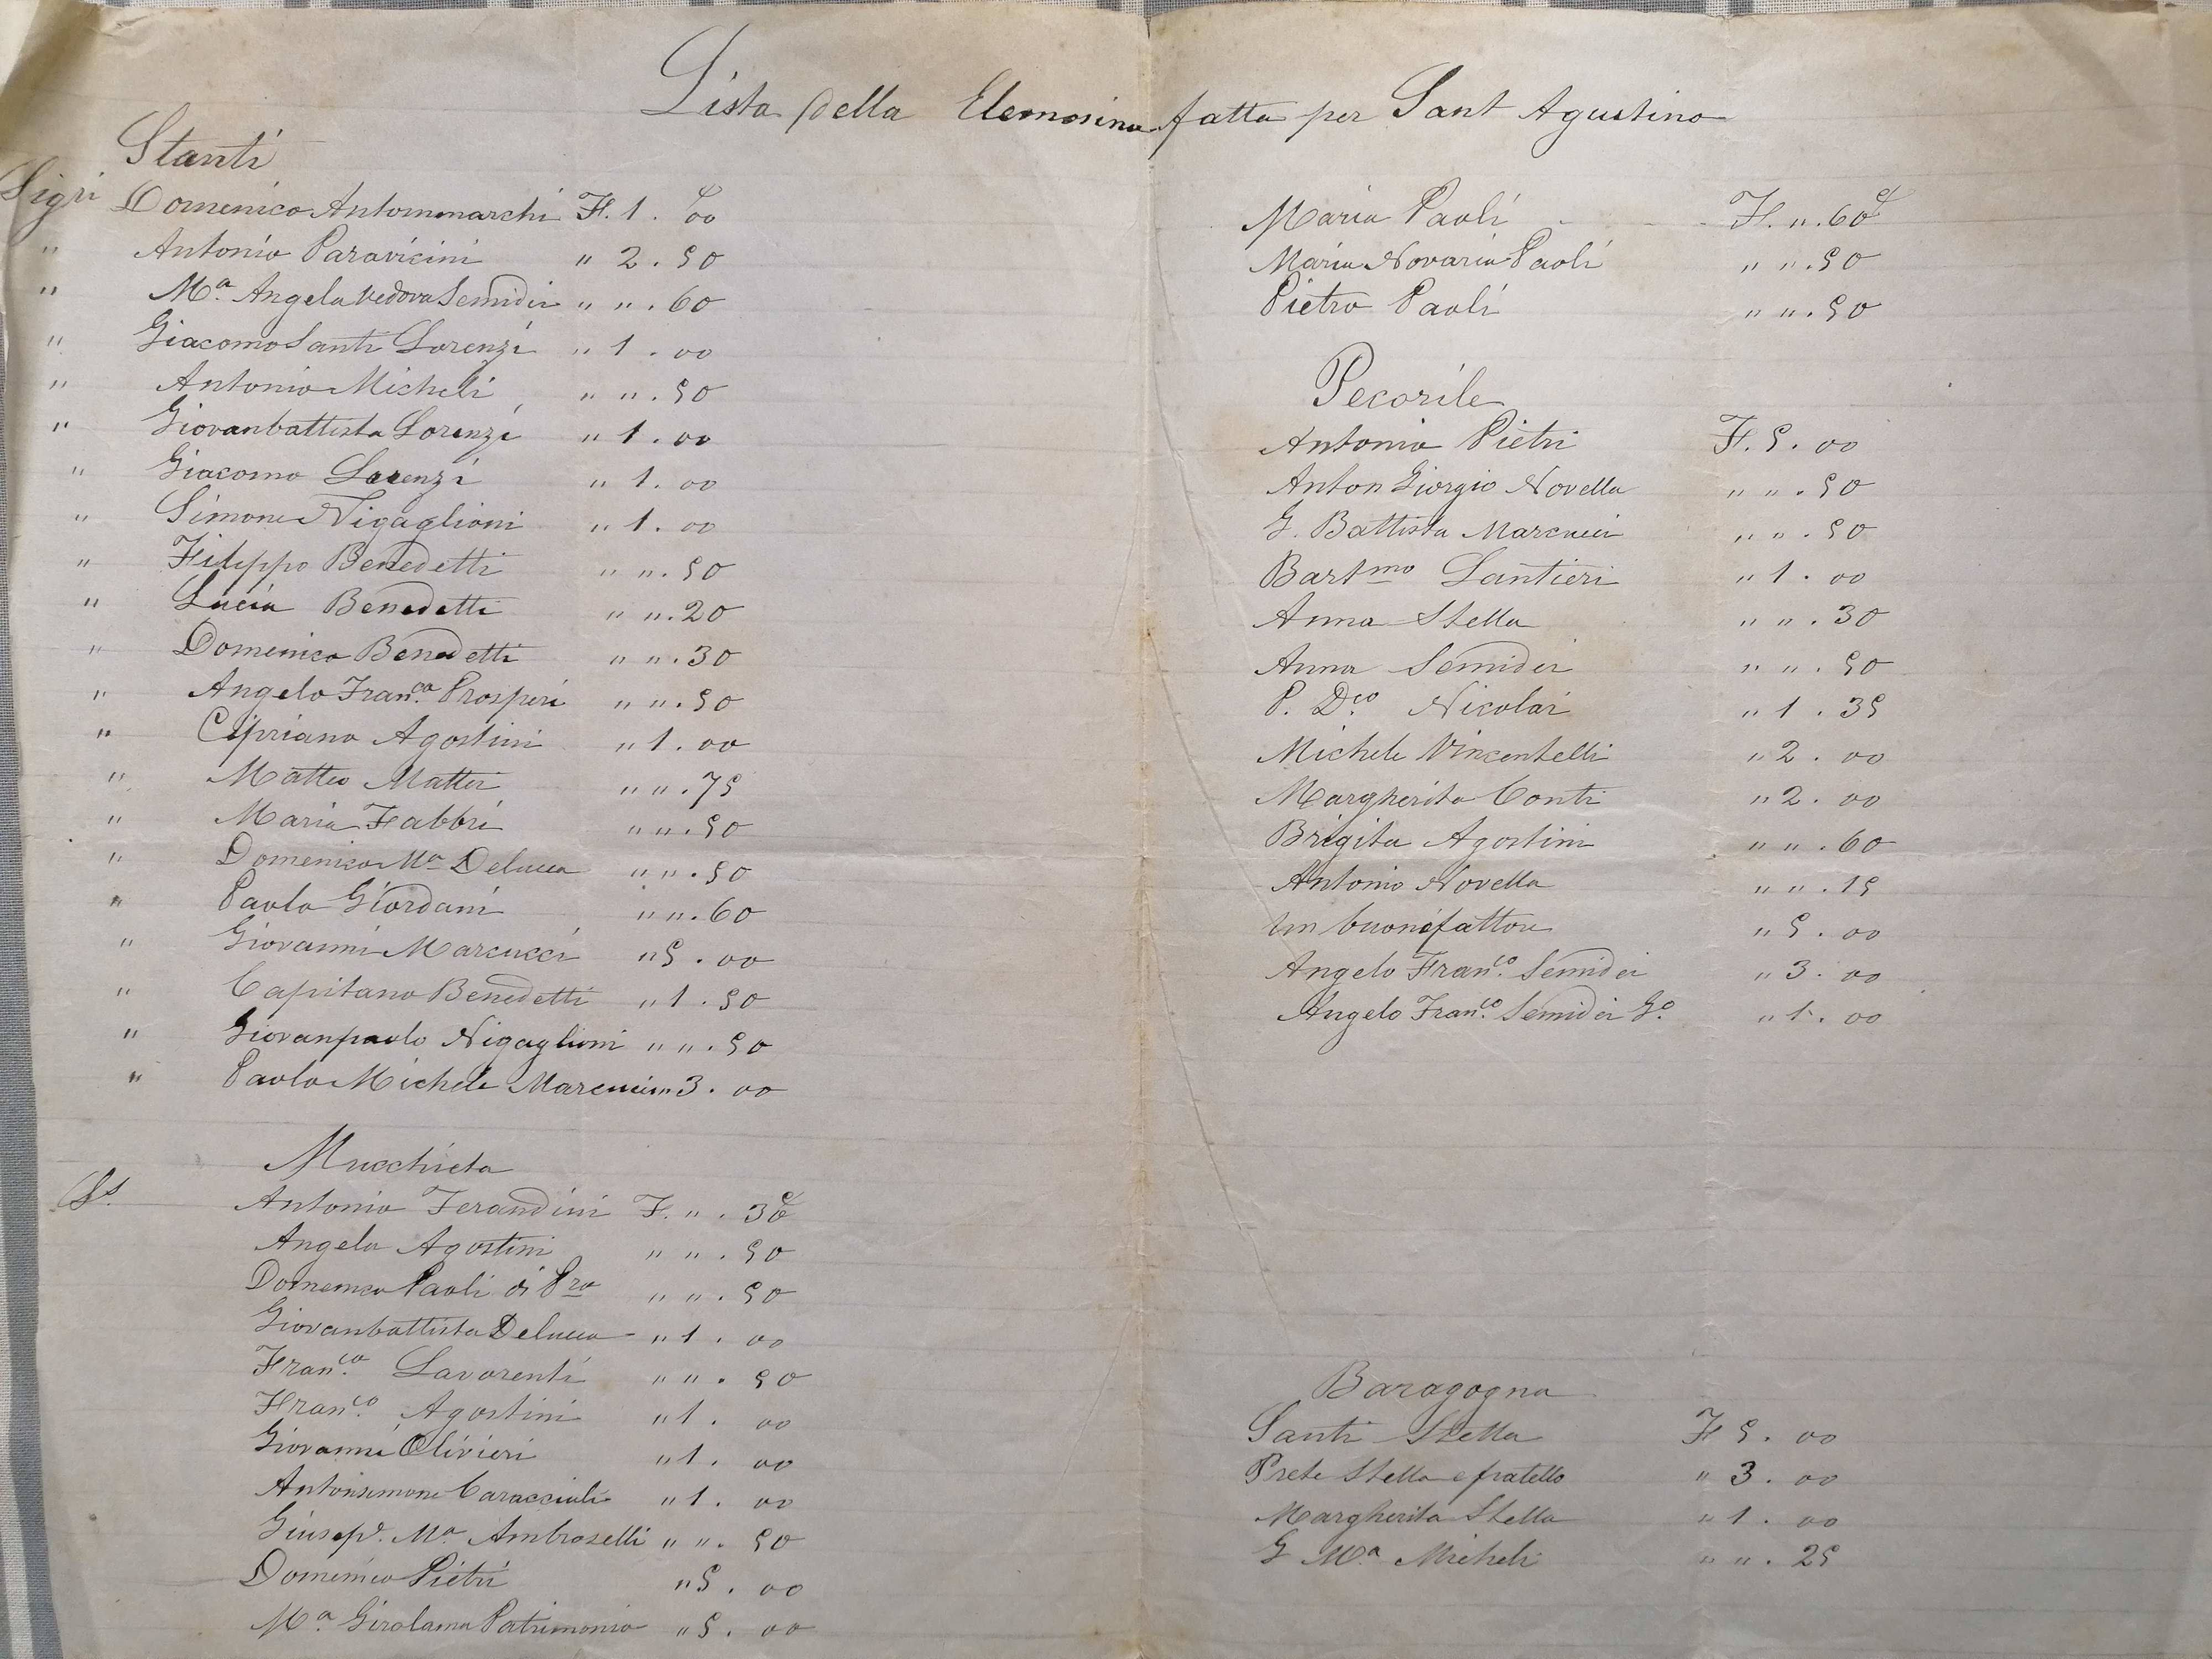 Lista della Elemosina fatta per Sant Agustino
Stanti
Sigri Domenico Antommarchi F. 1 . 00
" Antonio Paravicini " 2 . 50
" Mª Angela vedova Semidei " " . 60
" Giacomo Santi Lorenzi " 1 . 00
" Antonio Micheli " " . 50
" Giovanbattista Lorenzi " 1 . 00
" Giacomo Lorenzi " 1 . 00
" Simone Nigaglioni " 1 . 00
" Filippo Benedetti " " . 50
" Lucia Benedetti " " . 20
" Domenico Benedetti " " . 30
" Angelo Fran.ca Prosperi " " . 50
" Cipriano Agostini " 1 . 00
" Matteo Mattei " " . 75
" Maria Fabbri " " . 50
" Domenico Mª Delucca " " . 50
" Paolo Giordani " " . 60
" Giovanni Marcucci " 5 . 00
" Capitano Benedetti " 1 . 50
" Giovanpaolo Nigaglioni " " . 50
" Paolo Michele Marcucci " 3 . 00
Mucchieta
Ss. Antonio Ferandini F. " . 30
Angela Agostini " " . 50
Domenico Paoli di Pro " " . 50
Giovanbattista Delucca " 1 . 00
Fran.co Lavorenti " " . 50
Fran.co Agostini " 1 . 00
Giovanni Olivieri " 1 . 00
Antonsimone Caraccioli " 1 . 00
Giusep.e Mª Ambroselli " " . 50
Domenico Pietri " 5 . 00
Mª Girolama Patrimonio " 5 . 00
Maria Paoli F. " . 60
Maria Novaria Paoli " " . 50
Pietro Paoli " " . 50
Pecorile
Antonio Pietri F. 5 . 00
Anton Giorgio Novella " " . 50
G. Battista Marcucci " " . 50
Bartmo Santieri " 1 . 00
Anna Stella " " . 30
Anna Semidei " " . 50
P. D.co Nicolai " 1 . 35
Michele Vincentelli " 2 . 00
Margherita Conti " 2 . 00
Brigita Agostini " " . 60
Antonio Novella " " . 15
Un buonofattore " 5 . 00
Angelo Fran.co Semidei " 3 . 00
Angelo Fran.co Semidei G.º " 1 . 00
Baragogna
Santi Stella F 5 . 00
Prete Stella e fratello " 3 . 00
Margherita Stella " 1 . 00
G Mª Micheli " " . 25